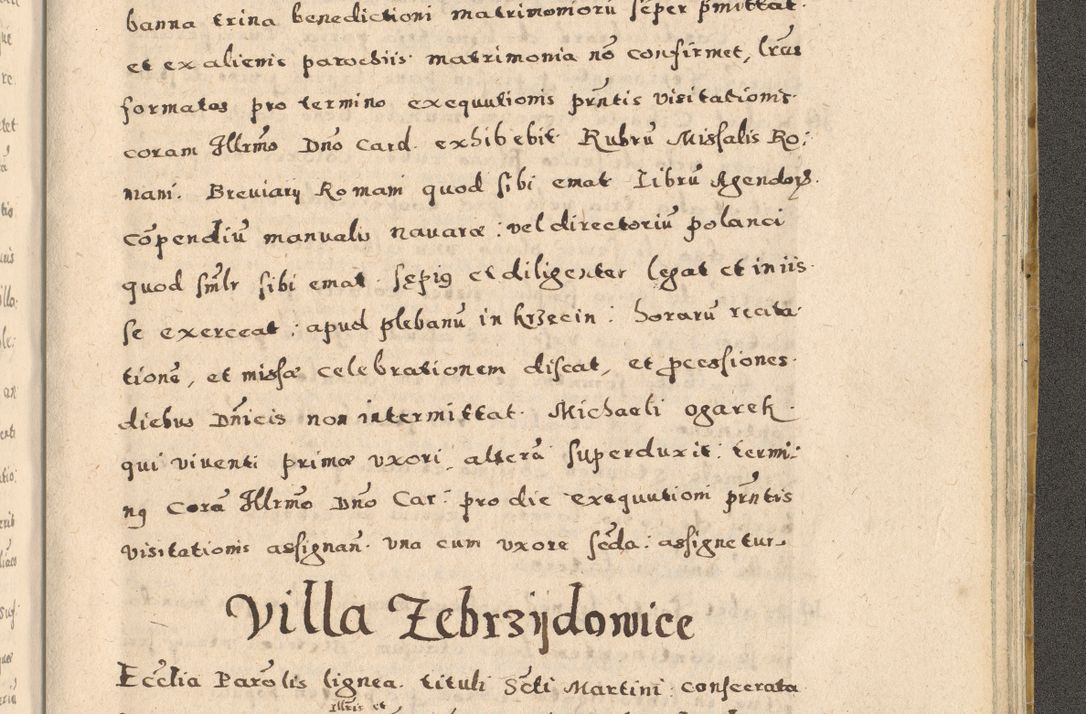 banna trina benedictioni matrimoniorũ sẽper pmittat.
et ex alienis parochiis matrimonia nõ confirmet, lrãs
formatas pro termino exequutionis prñtis visitationis
coram Illrmo Dño Card. exhibebit Rubrũ Missalis Ro:
mani. Breviarij Romani quod sibi emat librũ Agendorꝝ.
cõpendiũ manualis navaræ: vel directoriũ polanci
quod smlr sibi emat sępiꝰ et diligenter legat et in iis
se exerceat: apud plebanũ in krzecin: horarũ recita:
tionẽ, et missæ celebrationem discat, et pcessiones
diebus Dñicis non intermittat. Michaeli ogarek
qui viventi primæ vxori, alterã superduxit: termi:
nꝰ Corã Illrmo Dño Car: pro die exequutioni prñtis
visitationis assignañ. vna cum vxore scđa: assignetur
Villa Zebrzijdowice
Eccłia Parołis lignea. tituli Scti Martini consecrata
Illris et